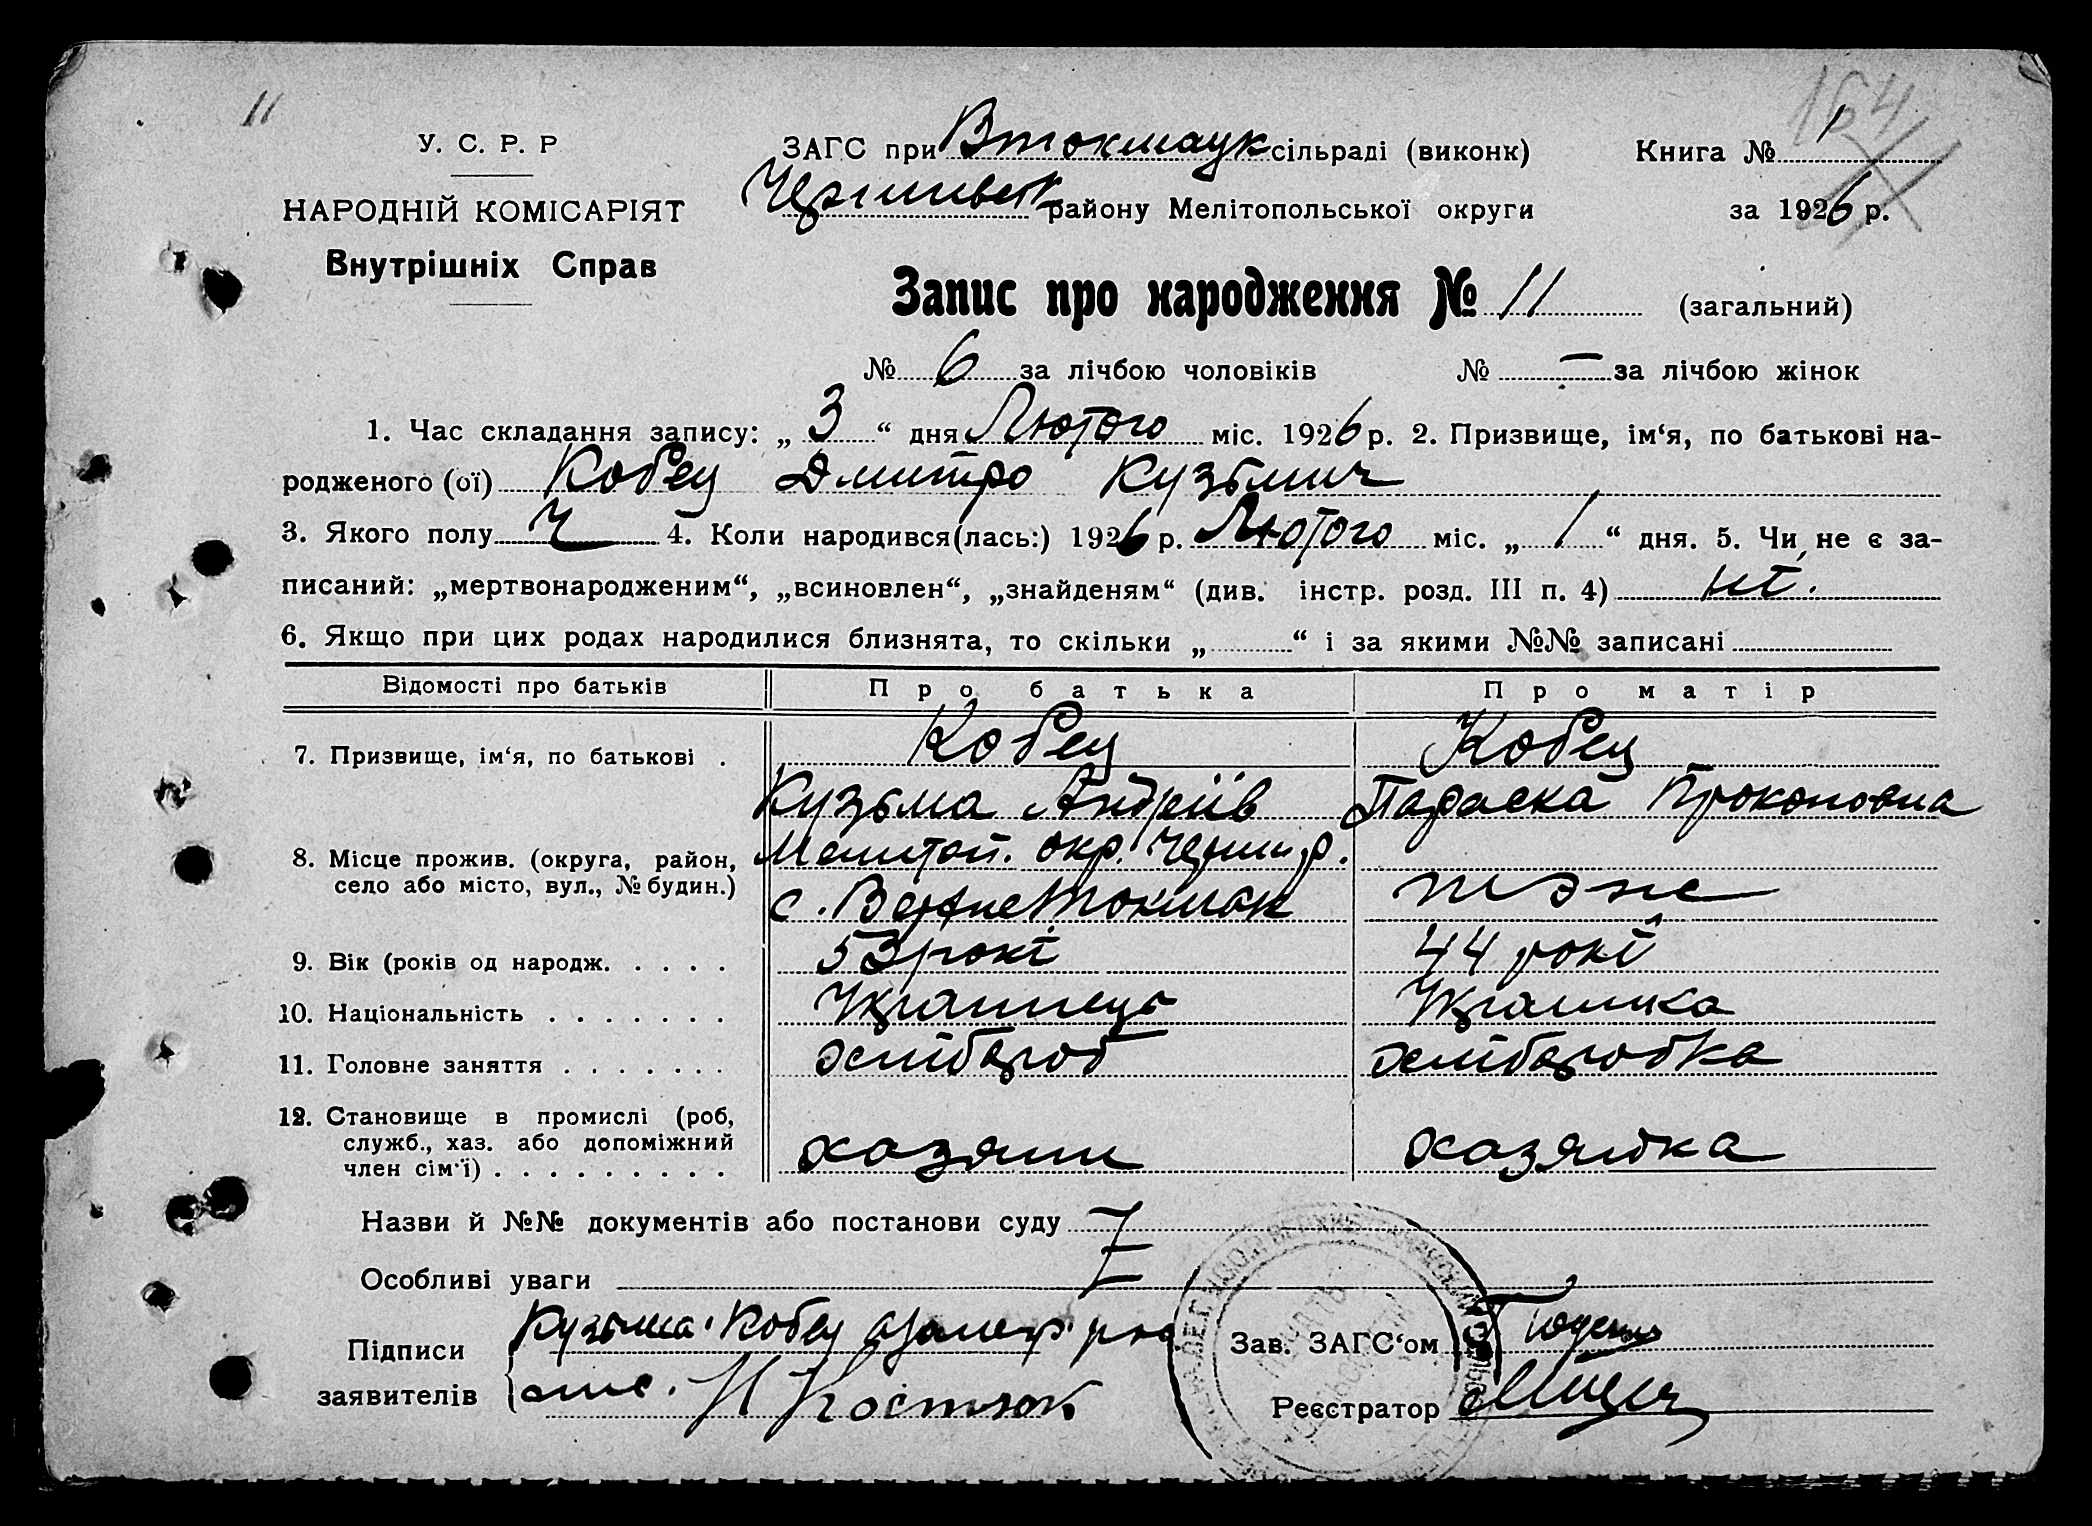 11
154
У. С. Р. Р
НАРОДНІЙ КОМІСАРІЯТ
Внутрішніх Справ
ЗАГС при Втокмацк сільраді (виконк)
Чернигівськ району Мелітопольської округи
Книга № 1
за 1926 р.
Запис про народження № 11 (загальний)
№ 6 за лічбою чоловіків № — за лічбою жінок
1. Час складання запису: „ 3 “ дня Лютого міс. 1926 р. 2. Призвище, ім‘я, по батькові на-
родженого (ої) Кобец Дмитро Кузьмич
3. Якого полу Ч 4. Коли народився(лась:) 1926 р. Лютого міс. „ 1 “ дня. 5. Чи не є за-
писаний: „мертвонародженим“, „всиновлен“, „знайденям“ (див. інстр. розд. III п. 4) ні.
6. Якщо при цих родах народилися близнята, то скільки „ “ і за якими №№ записані
Відомості про батьків Про батька Про матір
7. Призвище, ім‘я, по батькові . Кобец Кобец
Кузьма Андріїв Параска Прокоповна
8. Місце прожив. (округа, район, Мелитоп. окр. Черниг. р.
село або місто, вул., № будин.) с. Верхне Токмак тоже
9. Вік (років од народж. . . . . 53 рокі 44 рокі
10. Національність . . . . . . . Украинець Украинка
11. Головне заняття . . . . . . . хлібороб хліборобка
12. Становище в промислі (роб,
служб., хаз. або допоміжний хазяин хазяйка
член сім‘ї) . . . . . . . . .
Назви й №№ документів або постанови суду
Особливі уваги
Підписи Кузьма Кобец
заявителів Н Костюк
Зав. ЗАГС‘ом
Реєстратор